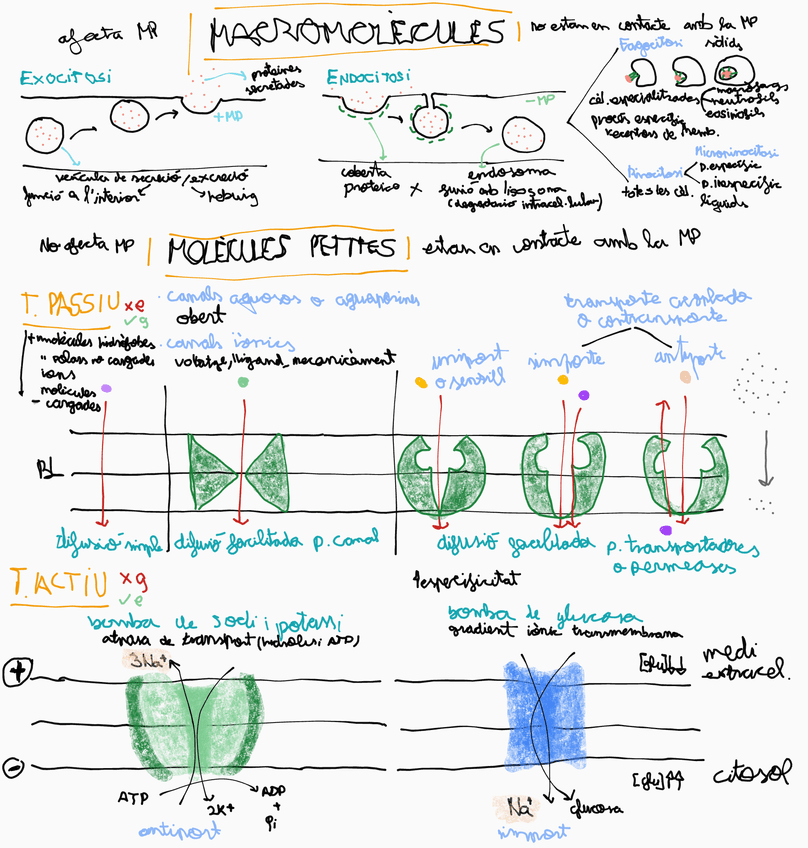 afecta MP
MACROMOLÈCULES
no estan en contacte amb la MP
EXOCITOSI
proteïnes
secretades
+MP
vesícula de secreció/excreció
funció a l'interior
ENDOCITOSI
-MP
coberta
proteica
endosoma
fusió amb lisosoma
(degradació intracel·lular)
Fagocitosi
sòlids
cèl. especialitzades
macròfags
neutròfils
eosinòfils
procés específic
receptors de memb.
Pinocitosi
totes les cèl.
Micropinocitosi
p. específic
p. inespecífic
líquids
No afecta MP
MOLÈCULES PETITES
estan en contacte amb la MP
T. PASSIU
x e
✓ g
+ molècules hidròfobes
" polars no cargades
ions
molècules
- cargades
· canals aquosos o aquaporines
obert
· canals iònics
voltatge, lligand, mecànicament
uniport
o senzill
transporte acoblado
o contransporte
simporte
antiporte
BL
difusió simple
difusió facilitada p. canal
difusió facilitada
p. transportadores
o permeases
T. ACTIU
x g
✓ e
↑especificitat
bomba de sodi i potassi
atpasa de transport (hidròlisi ATP)
bomba de glucosa
gradient iònic transmembrana
+
3Na+
[glu]↓↓
medi
extracel.
-
ATP
2K+
ADP
+
Pi
antiport
Na+
glucosa
simport
[glu]↑↑
citosol